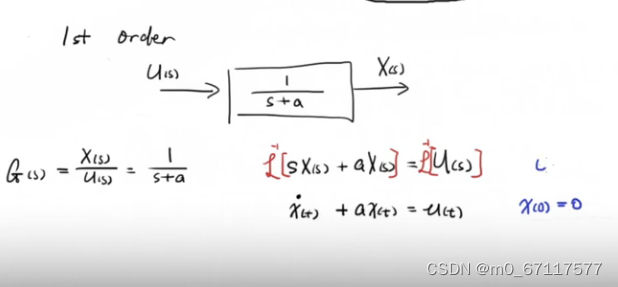 1st order
U(s)
1/(s+a)
X(s)
G(s) = X(s)/U(s) = 1/(s+a)
ℒ⁻¹[sX(s) + aX(s)] = ℒ⁻¹[U(s)]
ẋ(t) + ax(t) = u(t)
x(0) = 0
CSDN @m0_67117577